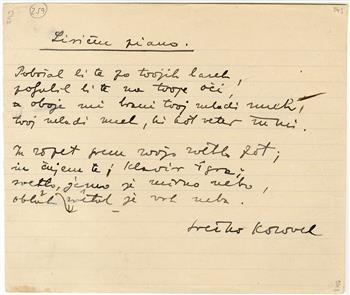 259
Lirični piano.
Pobožal bi te po tvojih laseh,
poljubil bi te na tvoje oči,
a oboje mi brani tvoj mladi smeh,
tvoj mladi smeh, ki kot veter šumi.
In zopet grem svojo svetlo pot;
in čujem te, klavir igra;
svetlo, jasno je mirno nebo,
oblak je vrh neba.
Srečko Kosovel